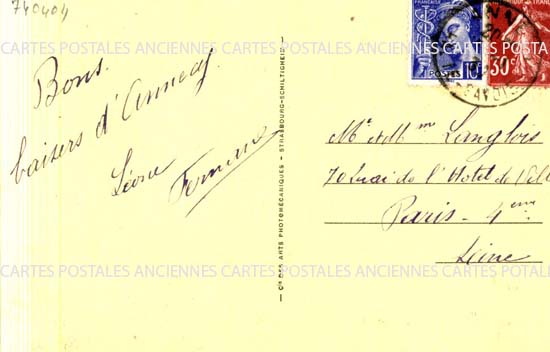 740404
Bons
baisers d'Annecy
Léone
Fernand
Cie DES ARTS PHOTOMÉCANIQUES - STRASBOURG-SCHILTIGHEIM
FRANÇAISE
POSTES 10c
30c
Mr et Mme Langlois
70 Quai de l'Hotel de Ville
Paris - 4eme
Seine
CARTES POSTALES ANCIENNES CARTES POSTALES ANCIENNES CARTES POSTALES ANCIENNES
CARTES POSTALES ANCIENNES CARTES POSTALES ANCIENNES CARTES POSTALES ANCIENNES